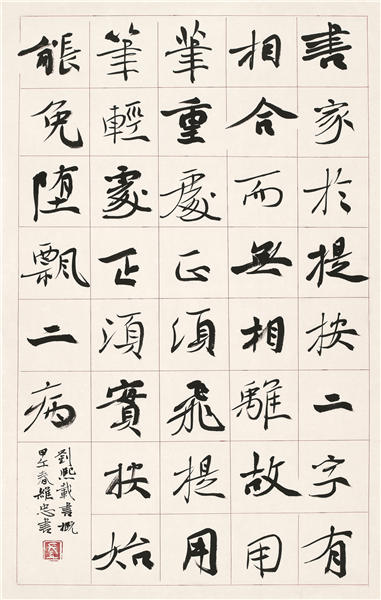 書家於提按二字有
相合而無相離故用
筆重處正須飛提用
筆輕處正須實按始
能免堕飄二病
劉熙載書概
甲午春雄忠書